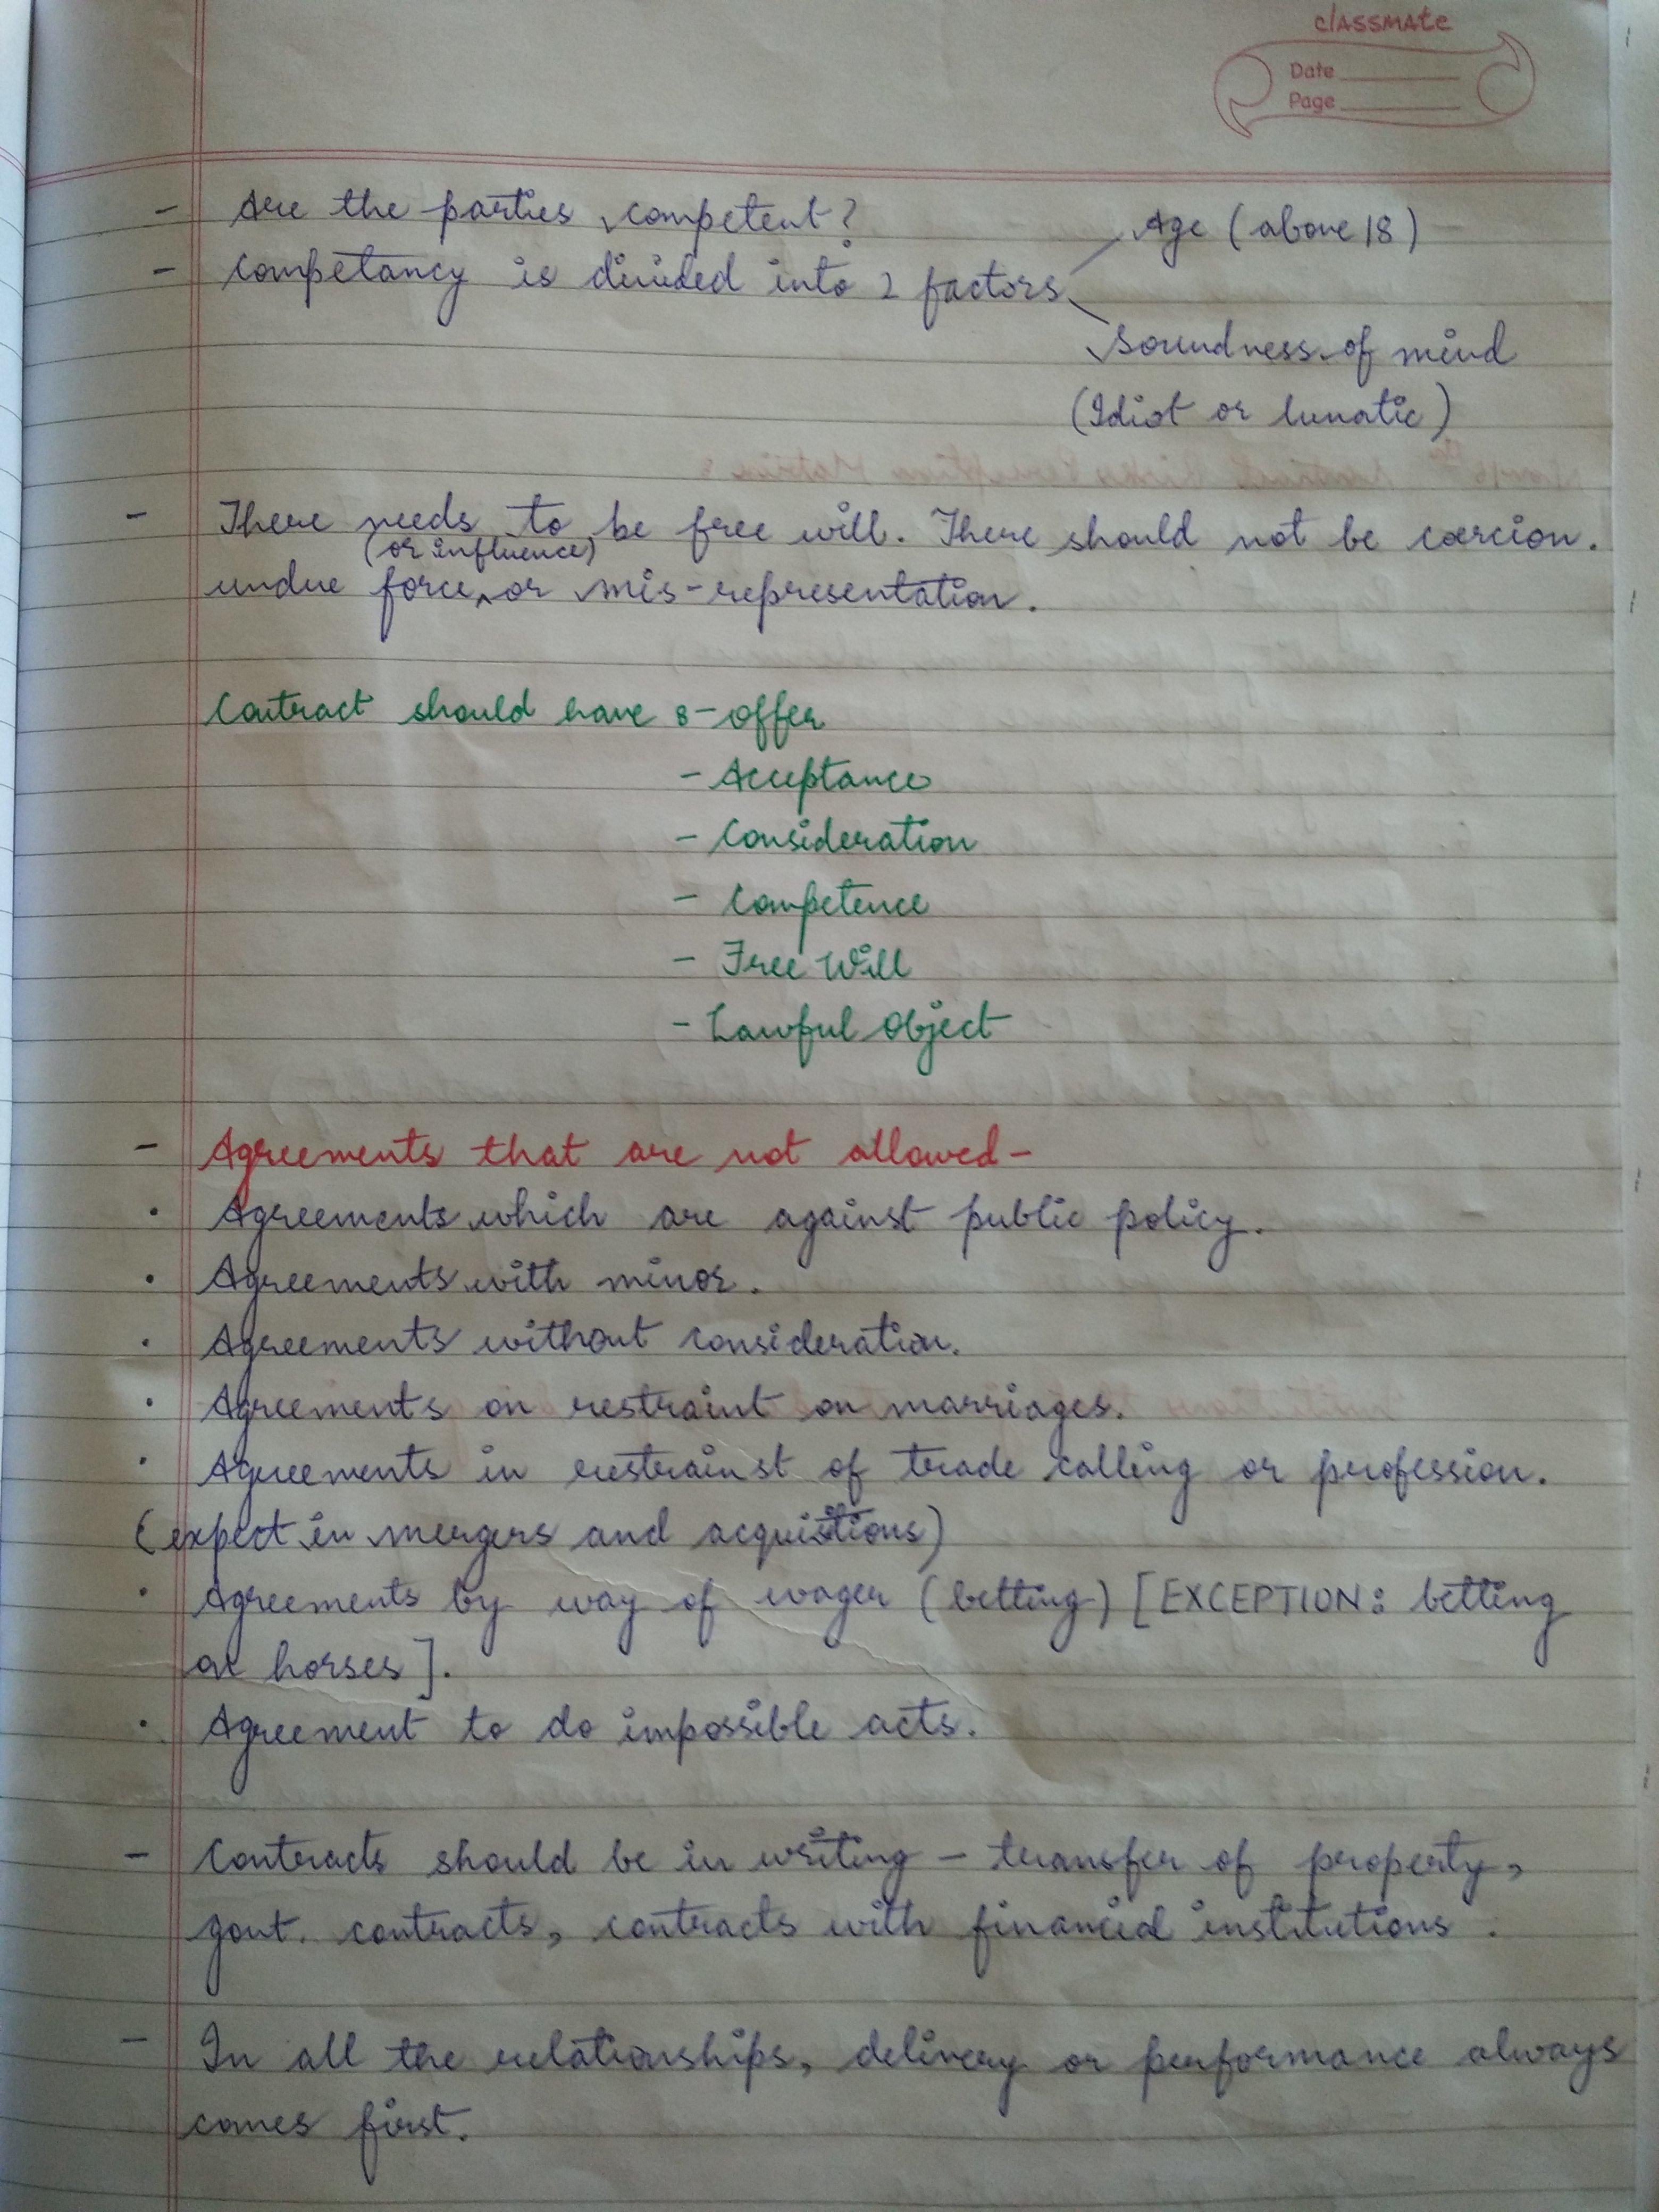 classmate
Date
Page
- Are the parties competent?
Age (above 18)
- Competancy is divided into 2 factors
Soundness of mind
(Idiot or lunatic)
- There needs to be free will. There should not be coercion.
(or influence)
undue force, or mis-representation.
Contract should have :- offer
- Acceptance
- Consideration
- Competence
- Free Will
- Lawful Object
- Agreements that are not allowed -
· Agreements which are against public policy.
· Agreements with minor.
· Agreements without consideration.
· Agreements on restraint on marriages.
· Agreements in restrainst of trade calling or profession.
(expect in mergers and acquisitions)
· Agreements by way of wager (betting) [EXCEPTION: betting
on horses].
· Agreement to do impossible acts.
- Contracts should be in writing - transfer of property,
govt. contracts, contracts with financial institutions.
- In all the relationships, delivery or performance always
comes first.